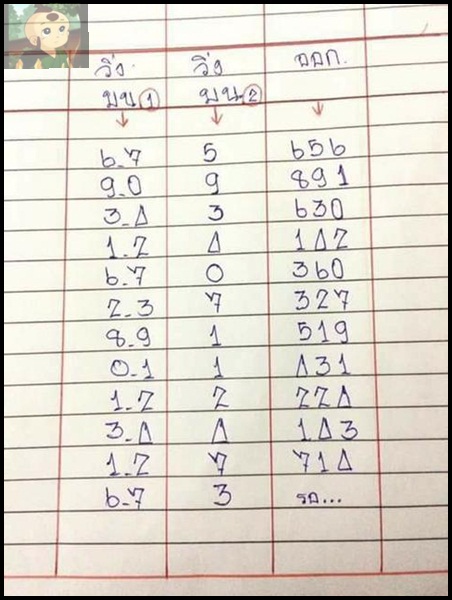 วิ่ง วิ่ง ออก.
บน① บน②
↓ ↓ ↓
6-7 5 656
9.0 9 891
3-4 3 630
1.2 4 142
6-7 0 360
2.3 7 327
8.9 1 519
0.1 1 431
1.2 2 224
3-4 4 143
1.2 7 714
6-7 3 รอ...